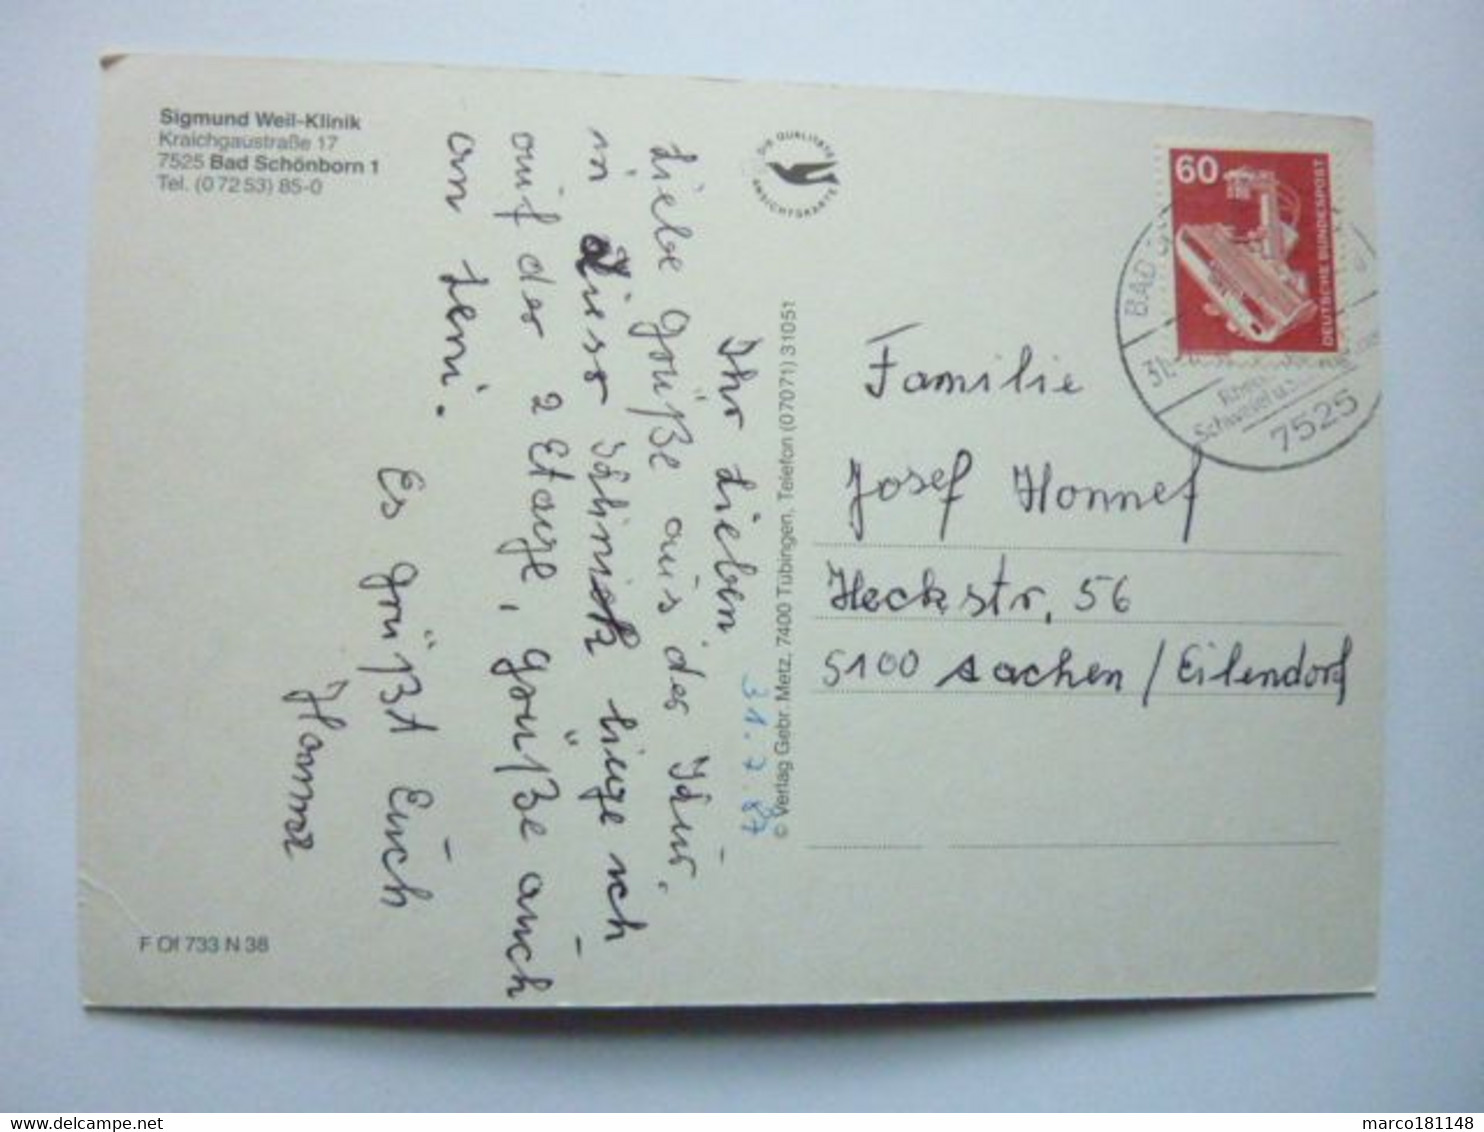 Sigmund Weil-Klinik
Kraichgaustraße 17
7525 Bad Schönborn 1
Tel. (0 72 53) 85-0
DIE QUALITÄTS
ANSICHTSKARTE
60
DEUTSCHE BUNDESPOST
BAD
31.
Schwefel u.
7525
31.7.87
Ihr lieben
Liebe Grüße aus der Kur.
in dieser Klinik liege ich
auf der 2 Etage, Grüße auch
an Leni.
Es grüßt Euch
Hanna
© Verlag Gebr. Metz, 7400 Tübingen, Telefon (07071) 31051
Familie
Josef Honnef
Heckstr. 56
5100 Aachen / Eilendorf
F Of 733 N 38
delcampe.net
marco181148